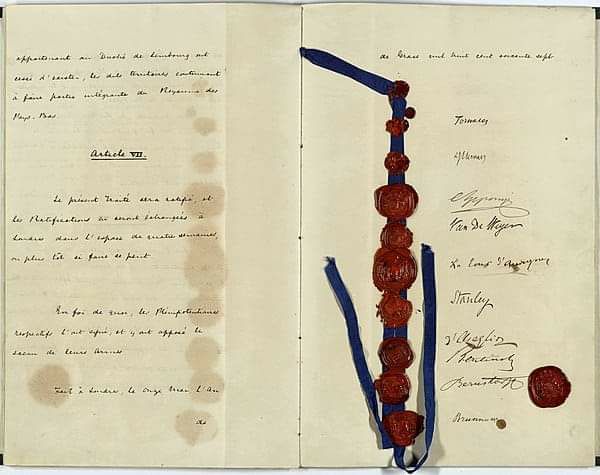 appartenant au Duché de Limbourg ont
cessé d'exister, les dits territoires continuent
à faire partie intégrante du Royaume des
Pays-Bas.
Article VII.
Le présent Traité sera ratifié, et
les Ratifications en seront échangées à
Londres dans l'espace de quatre semaines,
ou plus tôt si faire se peut
En foi de quoi, les Plénipotentiaires
respectifs l'ont signé, et y ont apposé le
sceau de leurs Armes
Fait à Londres, le onze Mai l'An
de
de Grace mil huit cent soixante sept
Tornaco
Apponyi
Van De Weyer
La Tour d'Auvergne
Stanley
d'Azeglio
Bentinck
Bernstorff
Brunnow